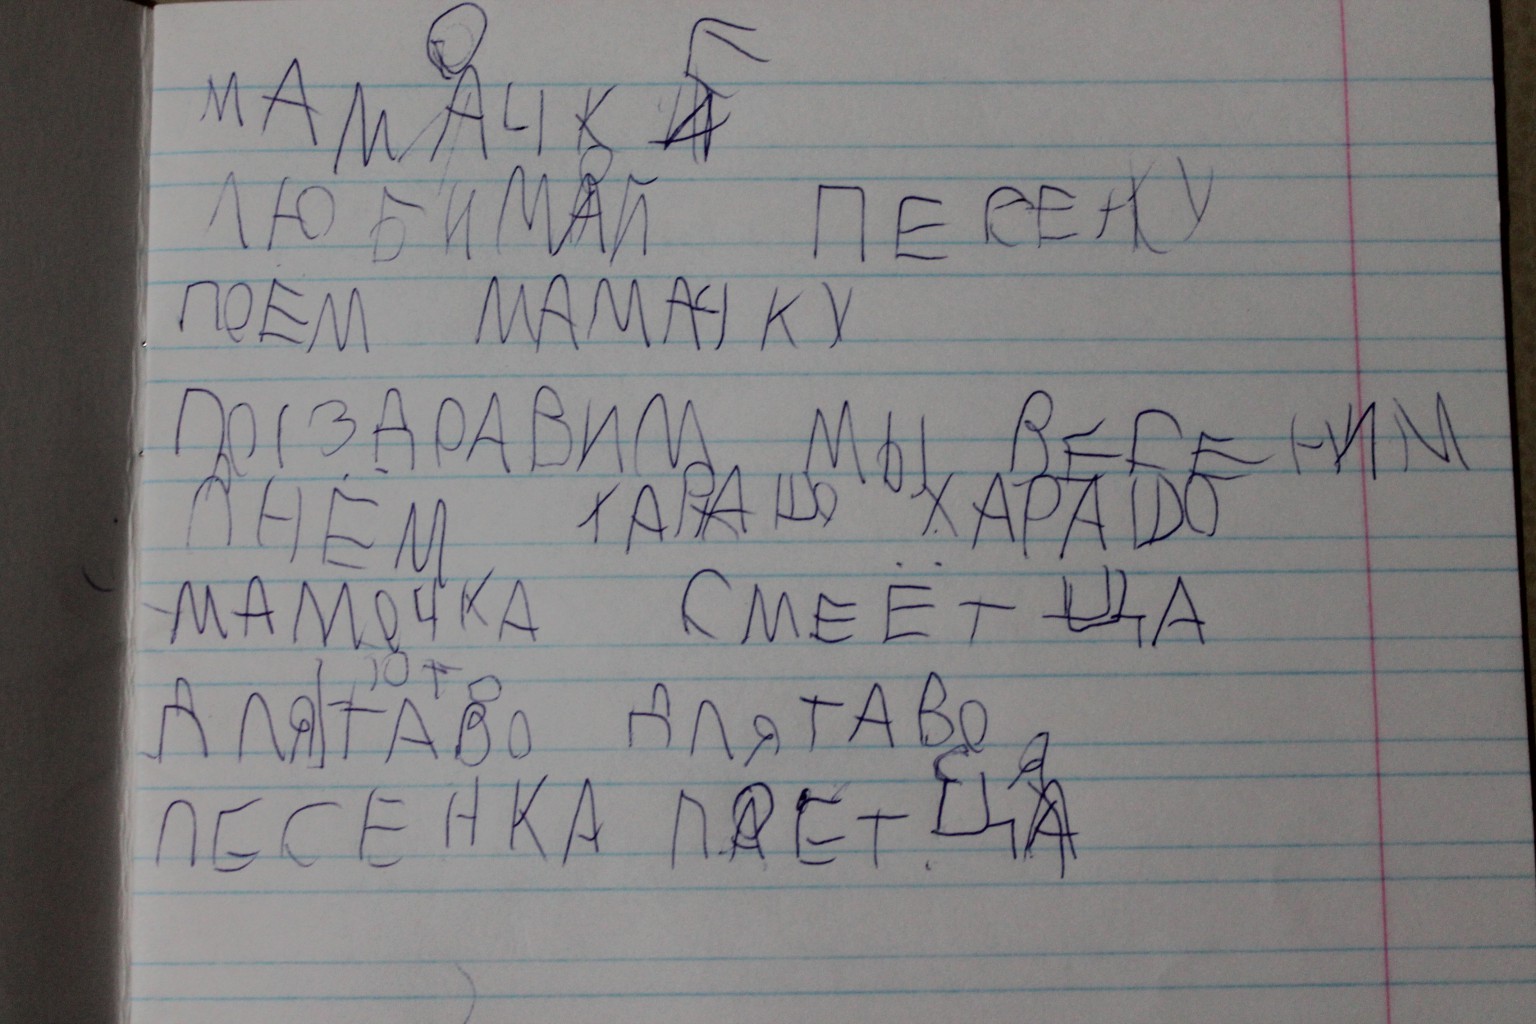 МАМОЧКЕ
ЛЮБИМОЙ ПЕСЕНКУ
ПОЕМ МАМАЧКУ
ПОЗДРАВИМ МЫ ВЕСЕНИМ
ДНЁМ ХАРАШО ХАРАШО
МАМОЧКА СМЕЁТЦА
ДЛЯ ТАВО ДЛЯТАВО
ПЕСЕНКА ПОЕТСЯ